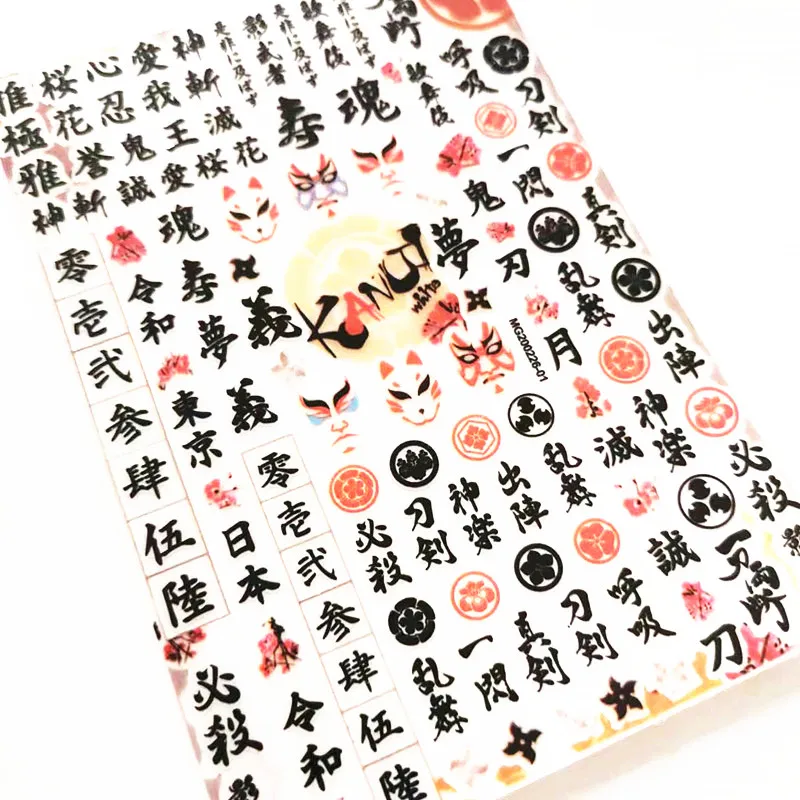 雅極雅神
桜花誉斬
心忍鬼誠
愛我王愛
神斬滅桜花
是非に及ばず
影武者
是非に及ばず
歌舞伎
是非に及ばず
寿
魂
歌舞伎
呼吸
刀剣
一閃
真剣
鬼
刃
乱舞
出陣
夢
月
魂
令和
寿
夢
義
零
壱
弐
参
肆
伍
陸
KANJI
white
MG200226-01
東京
義
日本
零
壱
弐
参
肆
伍
陸
必殺
刀剣
神楽
出陣
乱舞
滅
神楽
必殺
影
乱舞
一閃
真剣
刀剣
呼吸
誠
刀
必殺
令和
影